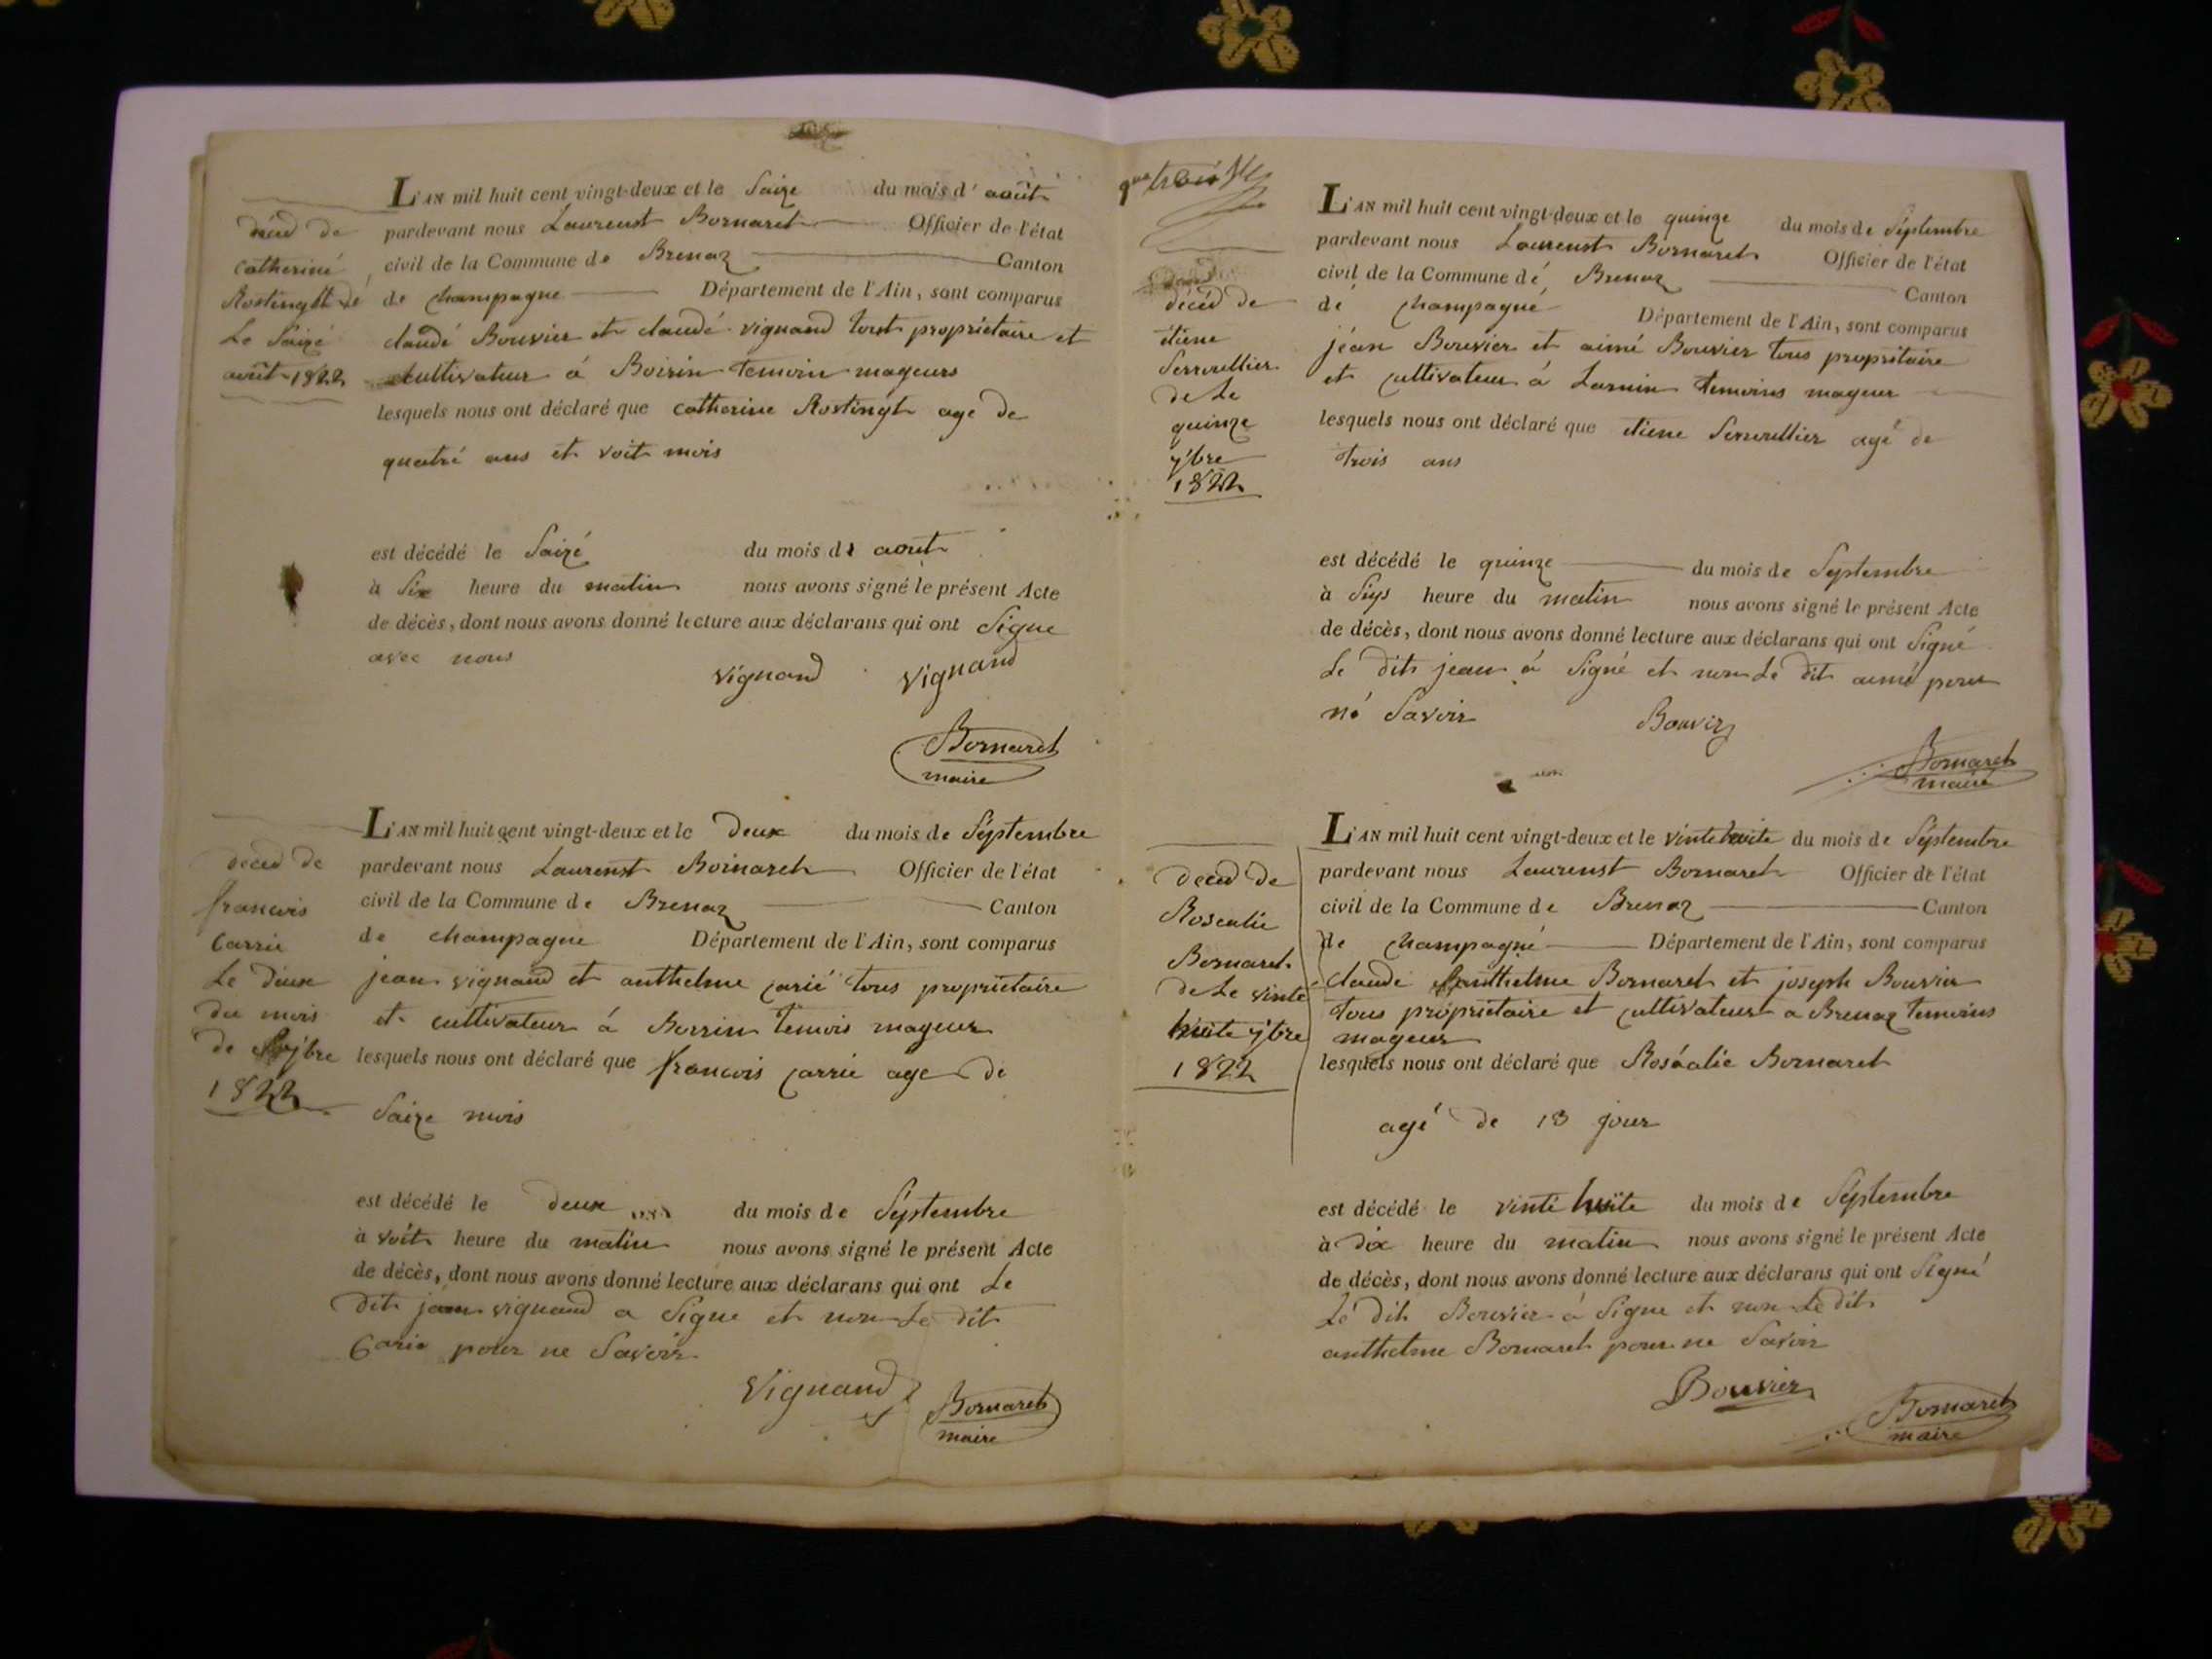 L'AN mil huit cent vingt-deux et le Saize du mois d' août
pardevant nous Laurenst Bornaret Officier de l'état
civil de la Commune de Brenaz Canton
de champagne Département de l'Ain, sont comparus
claudé Bouvier et claudé vignand tout propriétaire et
cultivateur á Boirin temoin mageurs
lesquels nous ont déclaré que catherine Rostingt age de
quatré ans et voit mois
est décédé le Saizé du mois de aout
à Six heure du matin nous avons signé le présent Acte
de décès, dont nous avons donné lecture aux déclarans qui ont Signe
avec nous
vignand vignand
Bornaret
maire
décéd de
catheriné
Rostingtt dé
Le Saizé
août 1822
L'AN mil huit cent vingt-deux et le deux du mois de Séptembre
pardevant nous Laurenst Boinaret Officier de l'état
civil de la Commune de Brenaz Canton
de champagne Département de l'Ain, sont comparus
jean vignand et anthelme carié tous propriétaire
et cultivateur á Borrin temois mageur
lesquels nous ont déclaré que francois carrié age de
Saize mois
est décédé le deux du mois de Séptembre
à voit heure du matin nous avons signé le présent Acte
de décès, dont nous avons donné lecture aux déclarans qui ont Le
dit jean vignand a Signe et non Le dit
Carie pour ne Savoir
Vignand
Bornaret
maire
décéd de
francois
Carrie
Le deuxe
du mois
de 7bre
1822
L'AN mil huit cent vingt-deux et le quinze du mois de Séptembre
pardevant nous Laurenst Bornaret Officier de l'état
civil de la Commune dé Brenaz Canton
dé champagné Département de l'Ain, sont comparus
jéan Bouvier et aimé Bouvier tous propritaire
et cultivateur á Larnin temoins mageur
lesquels nous ont déclaré que etiene Serroullier agé de
trois ans
est décédé le quinze du mois de Septembre
à Siys heure du matin nous avons signé le présent Acte
de décès, dont nous avons donné lecture aux déclarans qui ont Signé
Le dit jean á Signé et non Lé dit aimé pour
né Savoir
Bouvier
Bornaret
mairé
décéd de
étiene
Serroullier
de Le
quinze
7bre
1822
L'AN mil huit cent vingt-deux et le vintehuite du mois de Séptembre
pardevant nous Laurenst Bornaret Officier de l'état
civil de la Commune de Brenaz Canton
de champagné Département de l'Ain, sont comparus
claudé anthelme Bornaret et joseph Bouvier
tous propriétaire et cultivateur a Brenaz temoins
mageur
lesquels nous ont déclaré que Roséalie Bornaret
agé de 13 jour
est décédé le vinté huite du mois de Séptembre
à dix heure du matin nous avons signé le présent Acte
de décès, dont nous avons donné lecture aux déclarans qui ont Signé
Lé dit Bouvier á Signe et non Le dit
anthelme Bornaret pour ne Savoir
Bouvier
Bornaret
maire
décéd de
Rosealie
Bornaret
de Le vinté
huite 7bre
1822